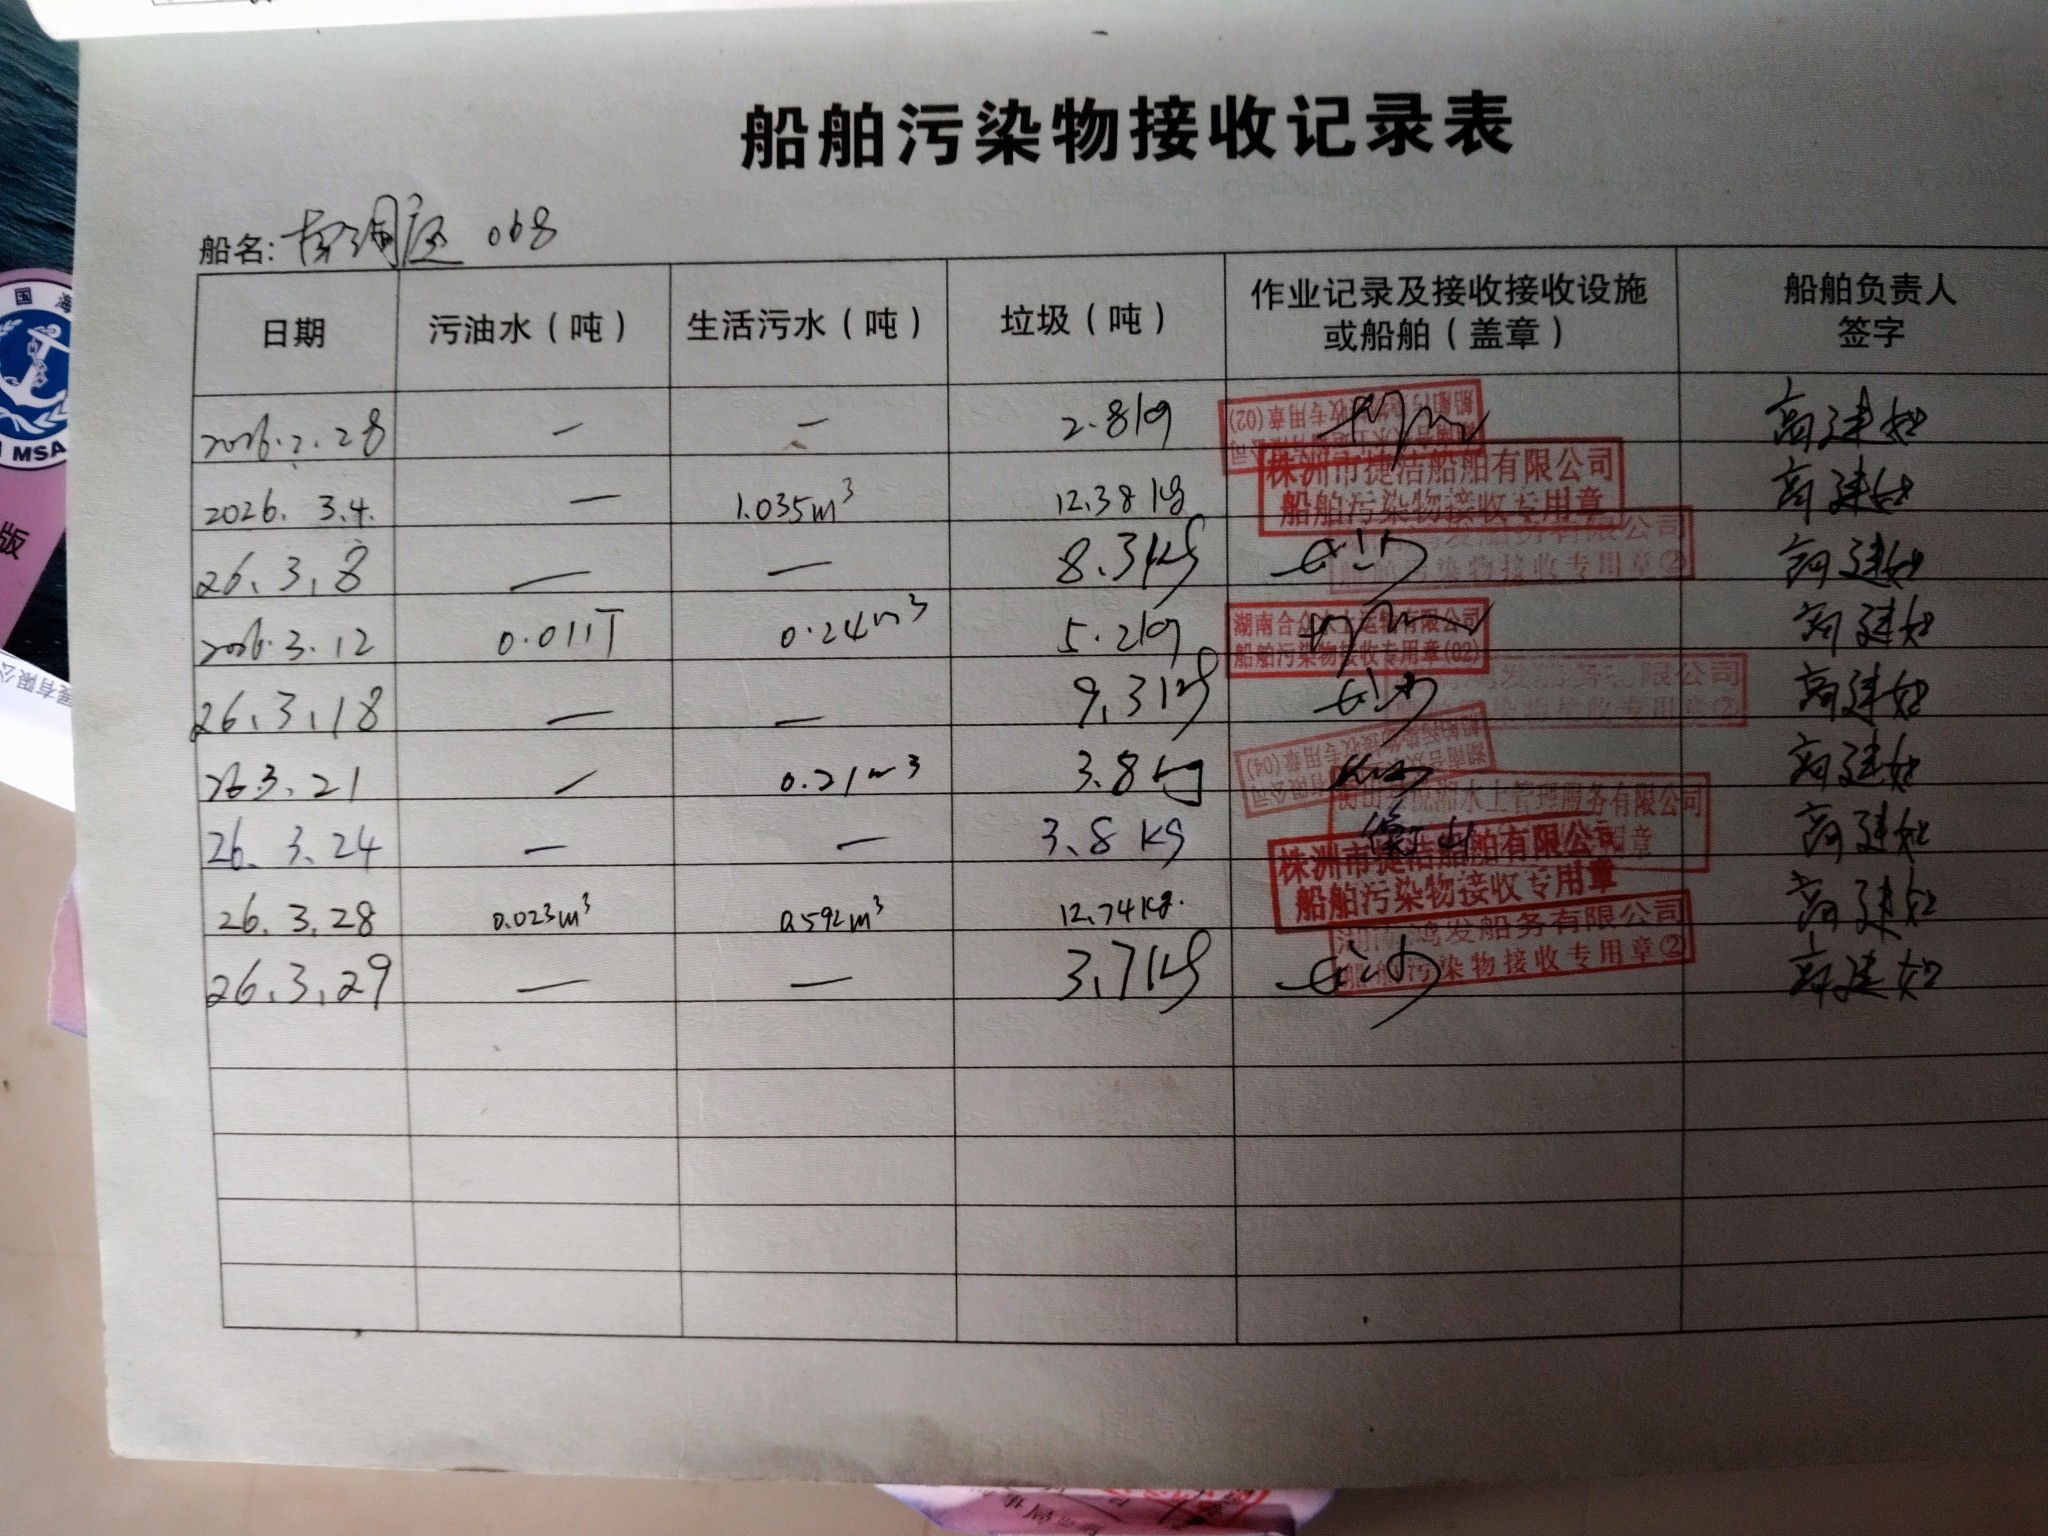 船舶污染物接收记录表
船名: 南洞庭 068
日期 污油水（吨） 生活污水（吨） 垃圾（吨） 作业记录及接收接收设施或船舶（盖章） 船舶负责人签字
2026.2.28 — — 2.8kg
2026. 3.4. — 1.035m³ 12.38kg 株洲市捷洁船舶有限公司 船舶污染物接收专用章
26.3.8 — — 8.3kg 船务有限公司 污染物接收专用章②
2026.3.12 0.011T 0.24m³ 5.2kg 湖南合众水上运输有限公司 船舶污染物接收专用章(02)
26.3.18 — — 9.3kg 发船务有限公司 专用章②
26.3.21 — 0.21m³ 3.8kg
26.3.24 — — 3.8 kg 水上管理服务有限公司
26.3.28 0.023m³ 0.592m³ 12.74kg. 株洲市捷洁船舶有限公司 船舶污染物接收专用章
26.3.29 — — 3.7kg 湖南鸿发船务有限公司 船舶污染物接收专用章②
MSA
版